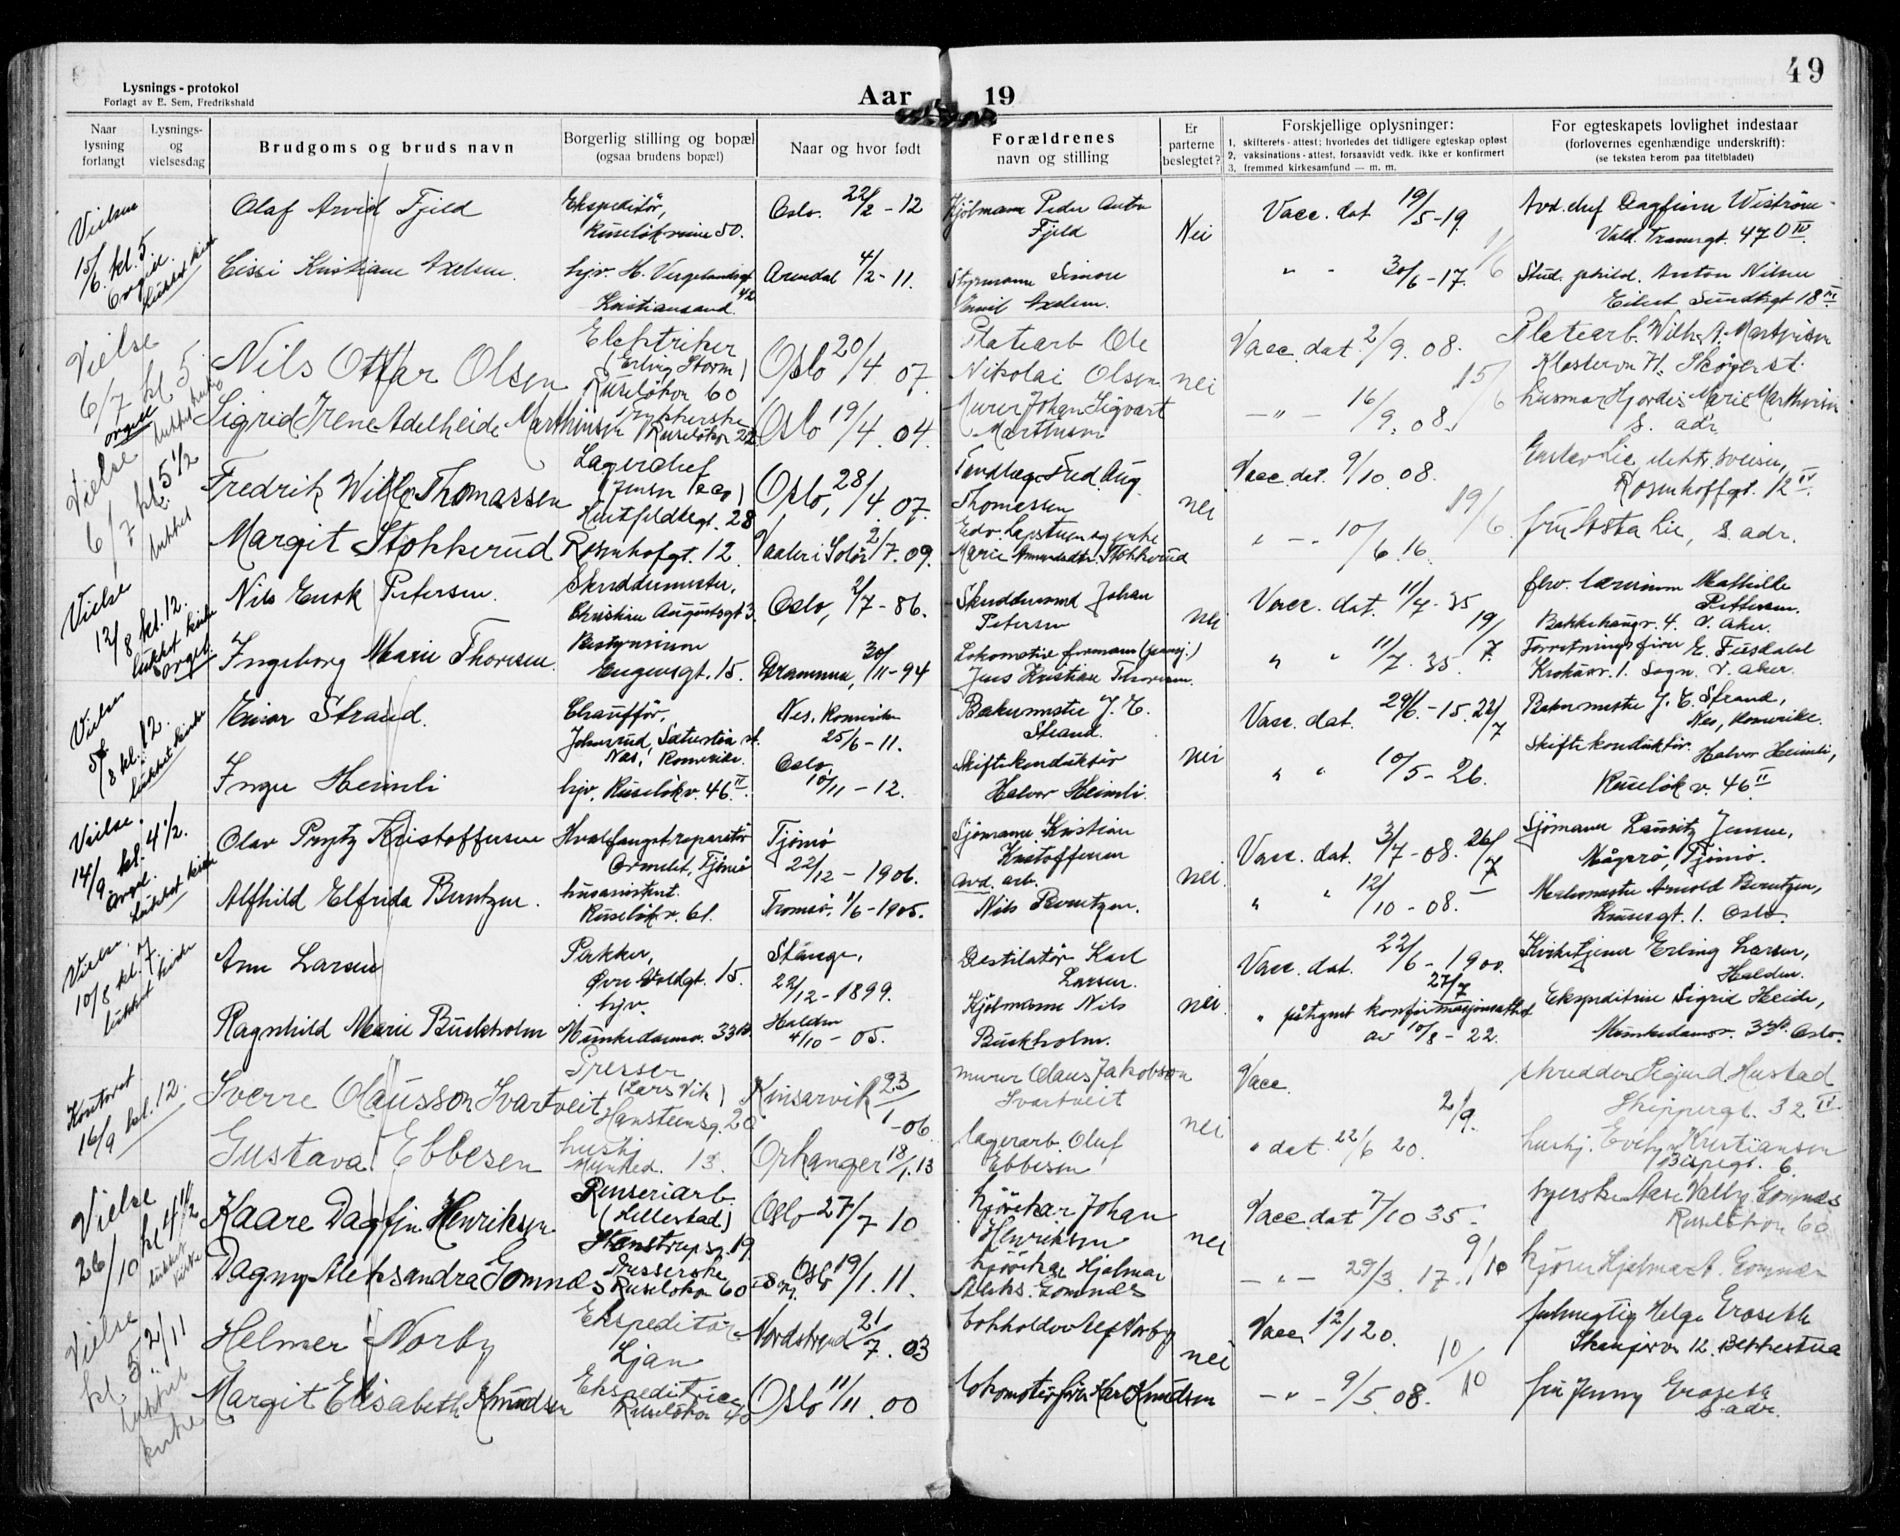 49
Lysnings-protokol
Forlagt av E. Sem, Fredrikshald
Aar 19
Naar lysning forlangt
Lysnings- og vielsesdag
Brudgoms og bruds navn
Borgerlig stilling og bopæl
(ogsaa brudens bopæl)
Naar og hvor født
Forældrenes
navn og stilling
Er parterne beslegtet?
Forskjellige oplysninger:
1. skifterets-attest: hvorledes det tidligere egteskap opløst
2. vaksinations-attest, forsaavidt vedk. ikke er konfirmert
3. fremmed kirkesamfund — m. m.
For egteskapets lovlighet indestaar
(forlovernes egenhændige underskrift):
(se teksten herom paa titelbladet)
Vielsen
15/6. kl. 5.
Orgel.
lukket kirke
Olaf Arvid Fjeld
Ekspeditør,
Ruseløkveien 50.
Oslo. 22/2-12
Hjólmann Peder Anton
Fjeld
Nei
Vacc. dat. 19/5-19.
Avd. chef Dagfinn Wistrøm
Vald. Thranesgt. 47 D IV.
Cissi Kristiane Axelsen.
hjv. H. Vergelandsgt. 42
Kristiansand.
Arendal 4/2-11.
Styrmann Simon
Emil Axelsen.
" - 30/6-17.
11/6
Stud. philol. Anton Nilsen
Eilert Sundtsgt 18 III
Vielse
6/7 kl 5.
orgel
lukket kirke
Nils Ottar Olsen
Elektriker
(Erling Storm)
Ruseløkvn 60
Oslo 20/4 07.
Platearb Ole
Nikolai Olsen
nei
Vacc. dat. 2/9. 08.
15/6
Platearb. Wilh. A. Marthinsen
Klostervn 71. Skøyen st.
Sigrid Irene Adelheide Marthinsen
Trykkerske
Ruseløkvn 22
Oslo 19/4. 04.
Murer Johan Sigvart
Marthinsen
—"— 16/9. 08.
husmor Hjordis Marie Marthinsen
s. adr.
Vielse
6/7 kl. 5 1/2
lukket
Fredrik Wille Thomassen
Lagerchef
(Jensen & Co)
Huitfeldtsgt. 28
Oslo, 28/4 07.
Tandlæge Fred. Aug.
Thomassen
nei
Vacc dat. 9/10. 08.
19/6
Gustav Lie, elektr. sveiser,
Rosenhoffgt. 12 IV.
Margit Stokkerud
Rosenhofgt. 12
Vaaler i Solør 2/7. 09.
Marie Amundsdtr. Stokkerud
" - - 10/6 16.
fru Asta Lie, s. adr.
Vielse
12/8 kl. 12.
lukket kirke
orgel.
Nils Enok Petersen.
Skreddermester,
Christian Augustsgt 3.
Oslo, 2/7-86.
Skreddersvend Johan
Petersen
nei
Vacc. dat. 11/7-35
19/7.
frw. lærerinne Mathilde
Pettersen.
Bakkehaugv. 4. V. Aker.
Ingeborg Marie Thoresen.
Bestyrerinne
Eugensgt. 15.
Drammen, 30/11-94
Lokomotivformann (pensj.)
Jens Kristian Thoresen.
" " 11/7. 35.
Forretningsfører E. Fusdahl
Krokusv. 1. Sogn. V. Aker.
Vielsen
5/8 kl. 12.
lukket kirke
Einar Strand.
Chauffør,
Nes, Romerike.
Nes, Romerike
25/6-11.
Bakermester J. E.
Strand.
nei
Vacc. dat. 29/6.-15.
22/7
Bakermester J. E. Strand,
Nes, Romerike.
Inger Heimli
hjv. Ruseløkv. 46 II.
Oslo,
10/11-12.
Skiftekonduktør
Halvor Heimli.
" " 10/5-26.
Skiftekonduktør. Halvor Heimli,
Ruseløkv. 46 II
Vielse.
14/9. kl. 4 1/2.
Orgel.
Lukket kirke
Olav Prytz Kristoffersen
Hvalfangstreparatør
Ormelet, Tjømø
Tjømø
22/12-1906.
Sjømann Kristian
Kristoffersen
nei
Vacc. dat. 3/7-08.
26/7
Sjømann Lauritz Jensen,
Mågerø, Tjømø.
Alfhild Elfrida Berntzen.
husassistent.
Ruseløkv. 61.
Tromsø, 1/6-1905.
avd. arb.
Nils Berntzen.
" " 12/10-08.
Malermester Arnold Berntzen,
Krusesgt. 1. Oslo.
Vielse.
10/8 kl. 7
lukket kirke
Arne Larsen
Pakker,
Øvre Voldgt. 15.
Stange,
22/12-1899.
Destilatør Karl
Larsen.
nei.
Vacc. dat. 22/6-1900.
27/7
Kirketjener Erling Larsen,
Halden.
Ragnhild Marie Buckholm
hjv.
Munkedamsv. 33 b
Halden
4/10-05.
Kjølmann Nils
Buckholm.
" påtegnet konfirmasjonsattest
av 10/8-22.
Ekspeditrise Sigrid Heide,
Munkedamsv. 33 b. Oslo.
Kontoret
16/9 kl. 12.
Sverre Olausson Svartveit
Presser
(Lars Vik)
Hansteensg. 20
Kinsarvik 23/1-06
murer Olaus Jakobson
Svartveit
nei
Vacc.
2/9.
skredder Sigurd Hustad
Skippergt. 32 IV
Gustava Ebbesen
Munked. 13.
Orkanger 18/1.13
lagerarb. Oluf
Ebbesen
" dat. 22/6 20.
hushj. Evelyn Kristiansen
Bispegt. 6
Vielse
26/10 kl 4 1/2
lukket
kirke
Kaare Dagfin Henriksen
Renseriarb.
(Hellestad)
Steenstrupsg. 19
Oslo 27/7 10
kjørekar Johan
Henriksen
nei
Vacc. dat 7/10 35
9/10
syerske Aase Valby Gomnæs
Ruseløkvn 60
Dagny Aleksandra Gomnæs
Presserske
Ruseløkvn 60
Oslo 19/1. 11.
kjørekar Hjalmar
Aleks. Gomnæs
—"— 29/3. 17.
kjører Hjalmar A. Gomnæs
Vielse
kl. 5 2/11
lukket
kirke
Helmer Norby
Ekspeditør
Ljan
Nordstrand 21/7. 03
bokholder Alf Norby
nei
Vacc 12/1 20.
10/10
fullmegtig Helge Graseth
12. Bekkestua
Margit Elisabeth Knudsen
Ekspeditrice
Ruseløkvn 40
Oslo 11/11. 00
lokomotivfører Karl Knudsen
—"— 9/5. 08.
fru Jenny Graseth
s adr.